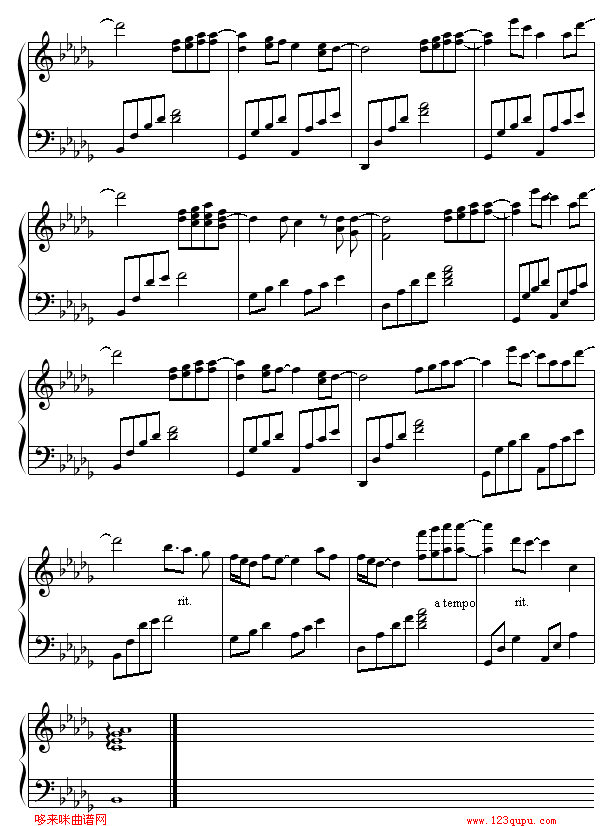 rit.
a tempo
rit.
哆来咪曲谱网
www.123qupu.com